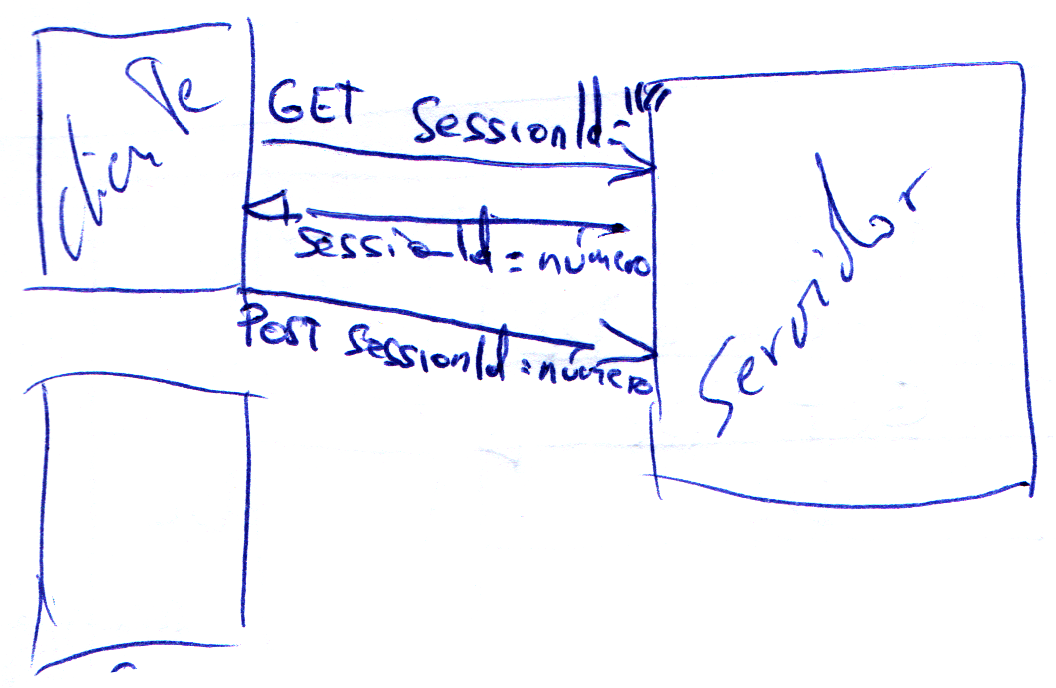 Cliente
GET SessionId=
SessionId=número
Post SessionId=número
Servidor